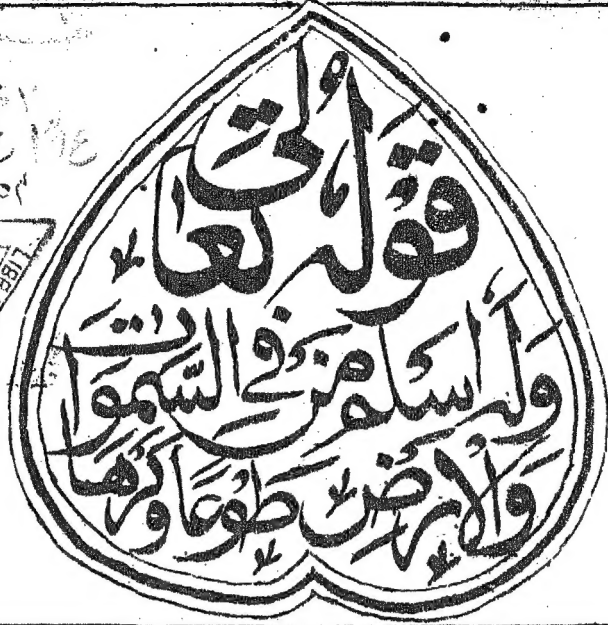 قوله تعالى
وله اسلم من في السموات
والارض طوعا وكرها